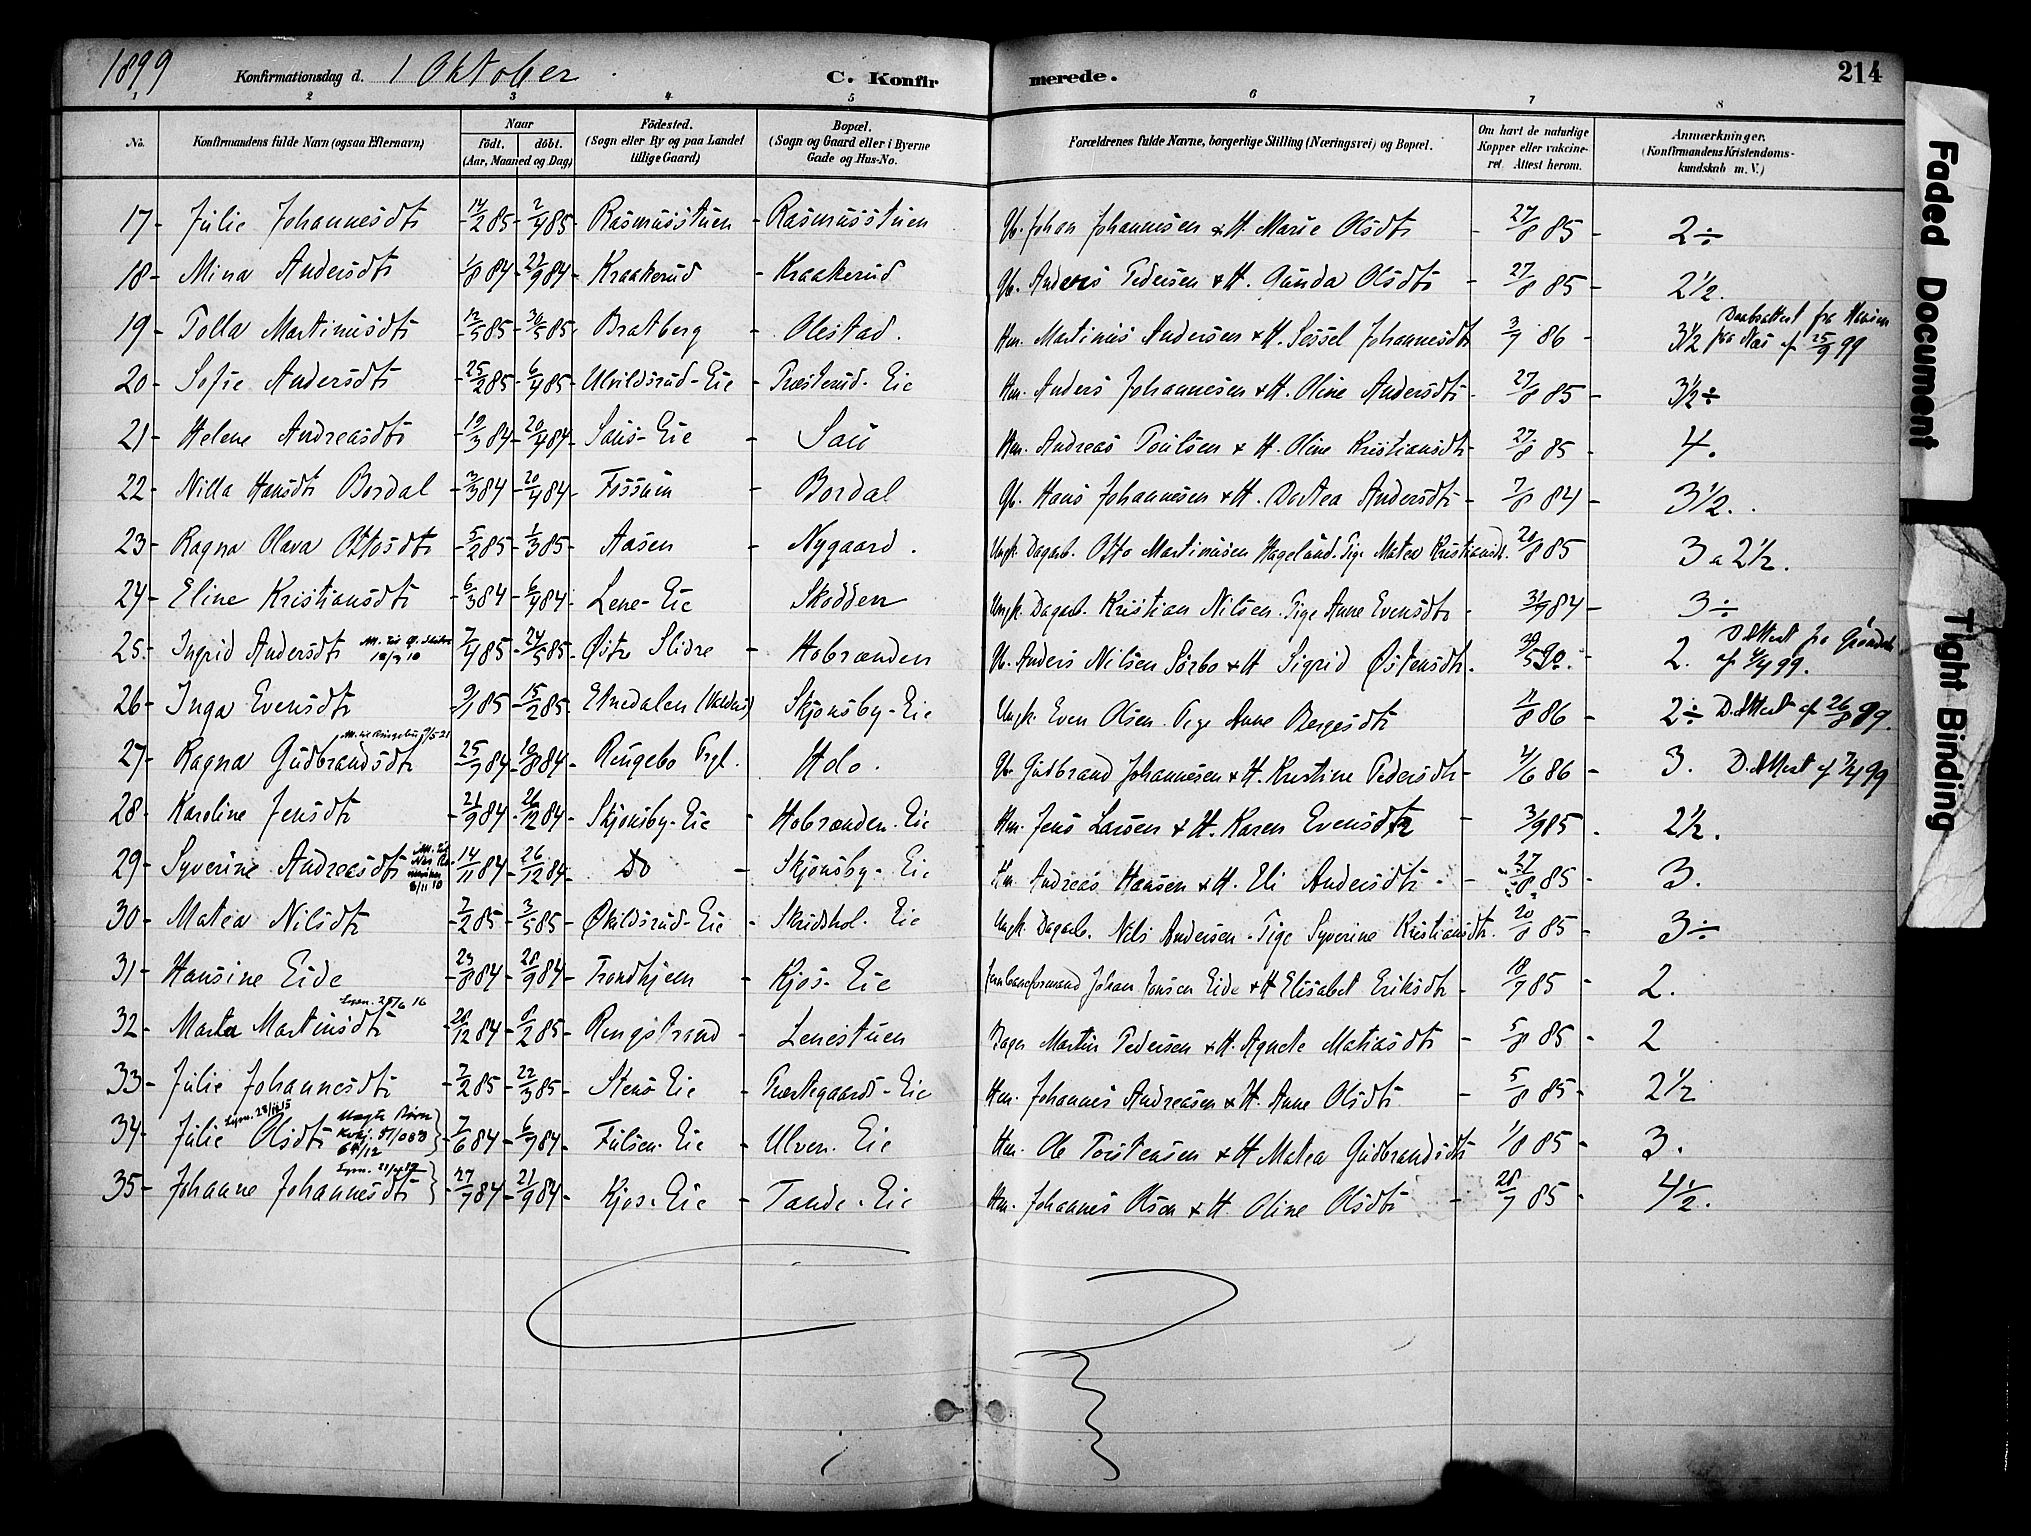 1899 Konfirmationsdag d. 1 Oktober. C. Konfirmerede. 214
1 2 3 4 5 6 7 8
No. Konfirmandens fulde Navn (ogsaa Efternavn) Naar født. døbt. (Aar, Maaned og Dag) Fødested. (Sogn eller By og paa Landet tillige Gaard) Bopæl. (Sogn og Gaard eller i Byerne Gade og Hus-No. Forældrenes fulde Navne, borgerlige Stilling (Næringsvei) og Bopæl. Om havt de naturlige Kopper eller vakcineret. Attest herom. Anmærkninger. (Konfirmandens Kristendomskundskab m. V.)
17 - Julie Johannesdtr - 14/2 85 - 2/4 85 - Rasmusstuen - Rasmusstuen Gb. Johan Johannesen & H. Marie Olsdtr - 27/8 85 - 2÷
18 - Mina Andersdtr - 1/8 84 - 21/9 84 - Kraakerud - Kraakerud Gb. Anders Pedersen & H. Gunda Olsdtr - 27/8 85 - 2½.
19 - Tolla Martinusdtr - 12/3 85 - 30/5 85 - Bratberg - Olestad. Hm. Martinus Andersen & H. Sessel Johannesdtr 3/9 86 - 3½ Daabsattest fra Nes af 25/9 99
20 - Sofie Andersdtr - 25/2 85 - 6/4 85 - Ulvildsrud-Eie - Præsterud-Eie Hm. Anders Johannesen & H. Oline Andersdtr - 27/8 85 - 3½÷
21 - Helene Andreasdtr - 19/3 84 - 20/4 84 - Saus-Eie - Sau Hm. Andreas Poulsen & H. Oline Kristiansdtr - 27/8 85 - 4.
22 - Nilla Hansdtr Bordal - 3/3 84 - 20/4 84 - Fossum - Bordal Gb. Hans Johannesen & H. Dortea Andersdtr - 7/8 84 - 3½.
23 - Ragna Olava Ottosdtr - 5/2 85 - 1/3 85 - Aasen - Nygaard. Ungk. Dagarb. Otto Martinusen Hageland. Pige Matea Kristiansdtr. 20/8 85 3 a 2½.
24 - Eline Kristiansdtr - 6/3 84 - 6/4 84 - Lene-Eie Skodden Ungk. Dagarb. Kristian Nilsen. Pige Anne Evensdtr - 31/7 84 - 3÷
25 - Ingrid Andersdtr - 7/4 85 - 24/5 85 - Østre Slidre - Hobrænden Gb. Anders Nilsen Sørbo & H. Sigrid Østensdtr. 30/5 90. 2. D. Attest fra
26 - Inga Evensdtr - 9/1 85 - 15/2 85 - Etnedalen (Valdres) Skjønsby-Eie Ungk. Even Olsen. Pige Anne Børgesdtr 11/8 86 - 2÷ D. Attest af 26/8 99.
27 - Ragna Gudbrandsdtr M. til Ringebu 9/5-21 25/7 84 - 10/8 84 - Ringebo Prgl. - Holo. Gb. Gudbrand Johannesen & H. Kristine Pedersdtr - 2/6 86 - 3. D. Attest af 7/4 99
28 - Karoline Jensdtr - 21/9 84 - 26/12 84 - Skjønsby-Eie - Hobrænden-Eie Hm. Jens Larsen & H. Karen Evensdtr - 3/9 85 - 2½.
29 - Syverine Andreasdtr 14/11 84 - 26/12 84 - Do - Skjønsby-Eie Hm. Andreas Hansen & H. Eli Andersdtr - 27/8 85 - 3.
30 - Matea Nilsdtr - 7/2 85 - 3/5 85 - Økildsrud-Eie - Skridshol-Eie Ungk. Dagarb. Nils Andersen - Pige Syverine Kristiansdtr. 20/8 85 - 3÷
31 - Hansine Eide - 23/8 84 - 28/9 84 - Trondhjem - Kjos-Eie Jernbaneformand Johan Jonsen Eide & H. Elisabet Eriksdtr - 18/7 85 - 2.
32 - Marta Martinsdtr - 20/12 84 - 8/2 85 - Ringstrand - Lenestuen Bager Martin Pedersen & H. Agnete Matiasdtr - 5/8 85 - 2
33 - Julie Johannesdtr - 7/2 85 - 22/3 85 - Stens Eie - Præstegaards-Eie Hm. Johannes Andreasen & H. Anne Olsdtr - 5/8 85 - 2½
34 - Julie Olsdtr - 7/6 84 - 6/7 84 - Fulsen-Eie - Ulven-Eie Hm. Ole Torstensen & H. Matea Gudbrandsdtr 1/8 85 - 3.
35 - Johanne Johannesdtr - 27/7 84 - 21/9 84 - Kjos-Eie - Tande-Eie Hm. Johannes Olsen & H. Oline Olsdtr - 28/7 85 - 4½.
Faded Document
Tight Binding